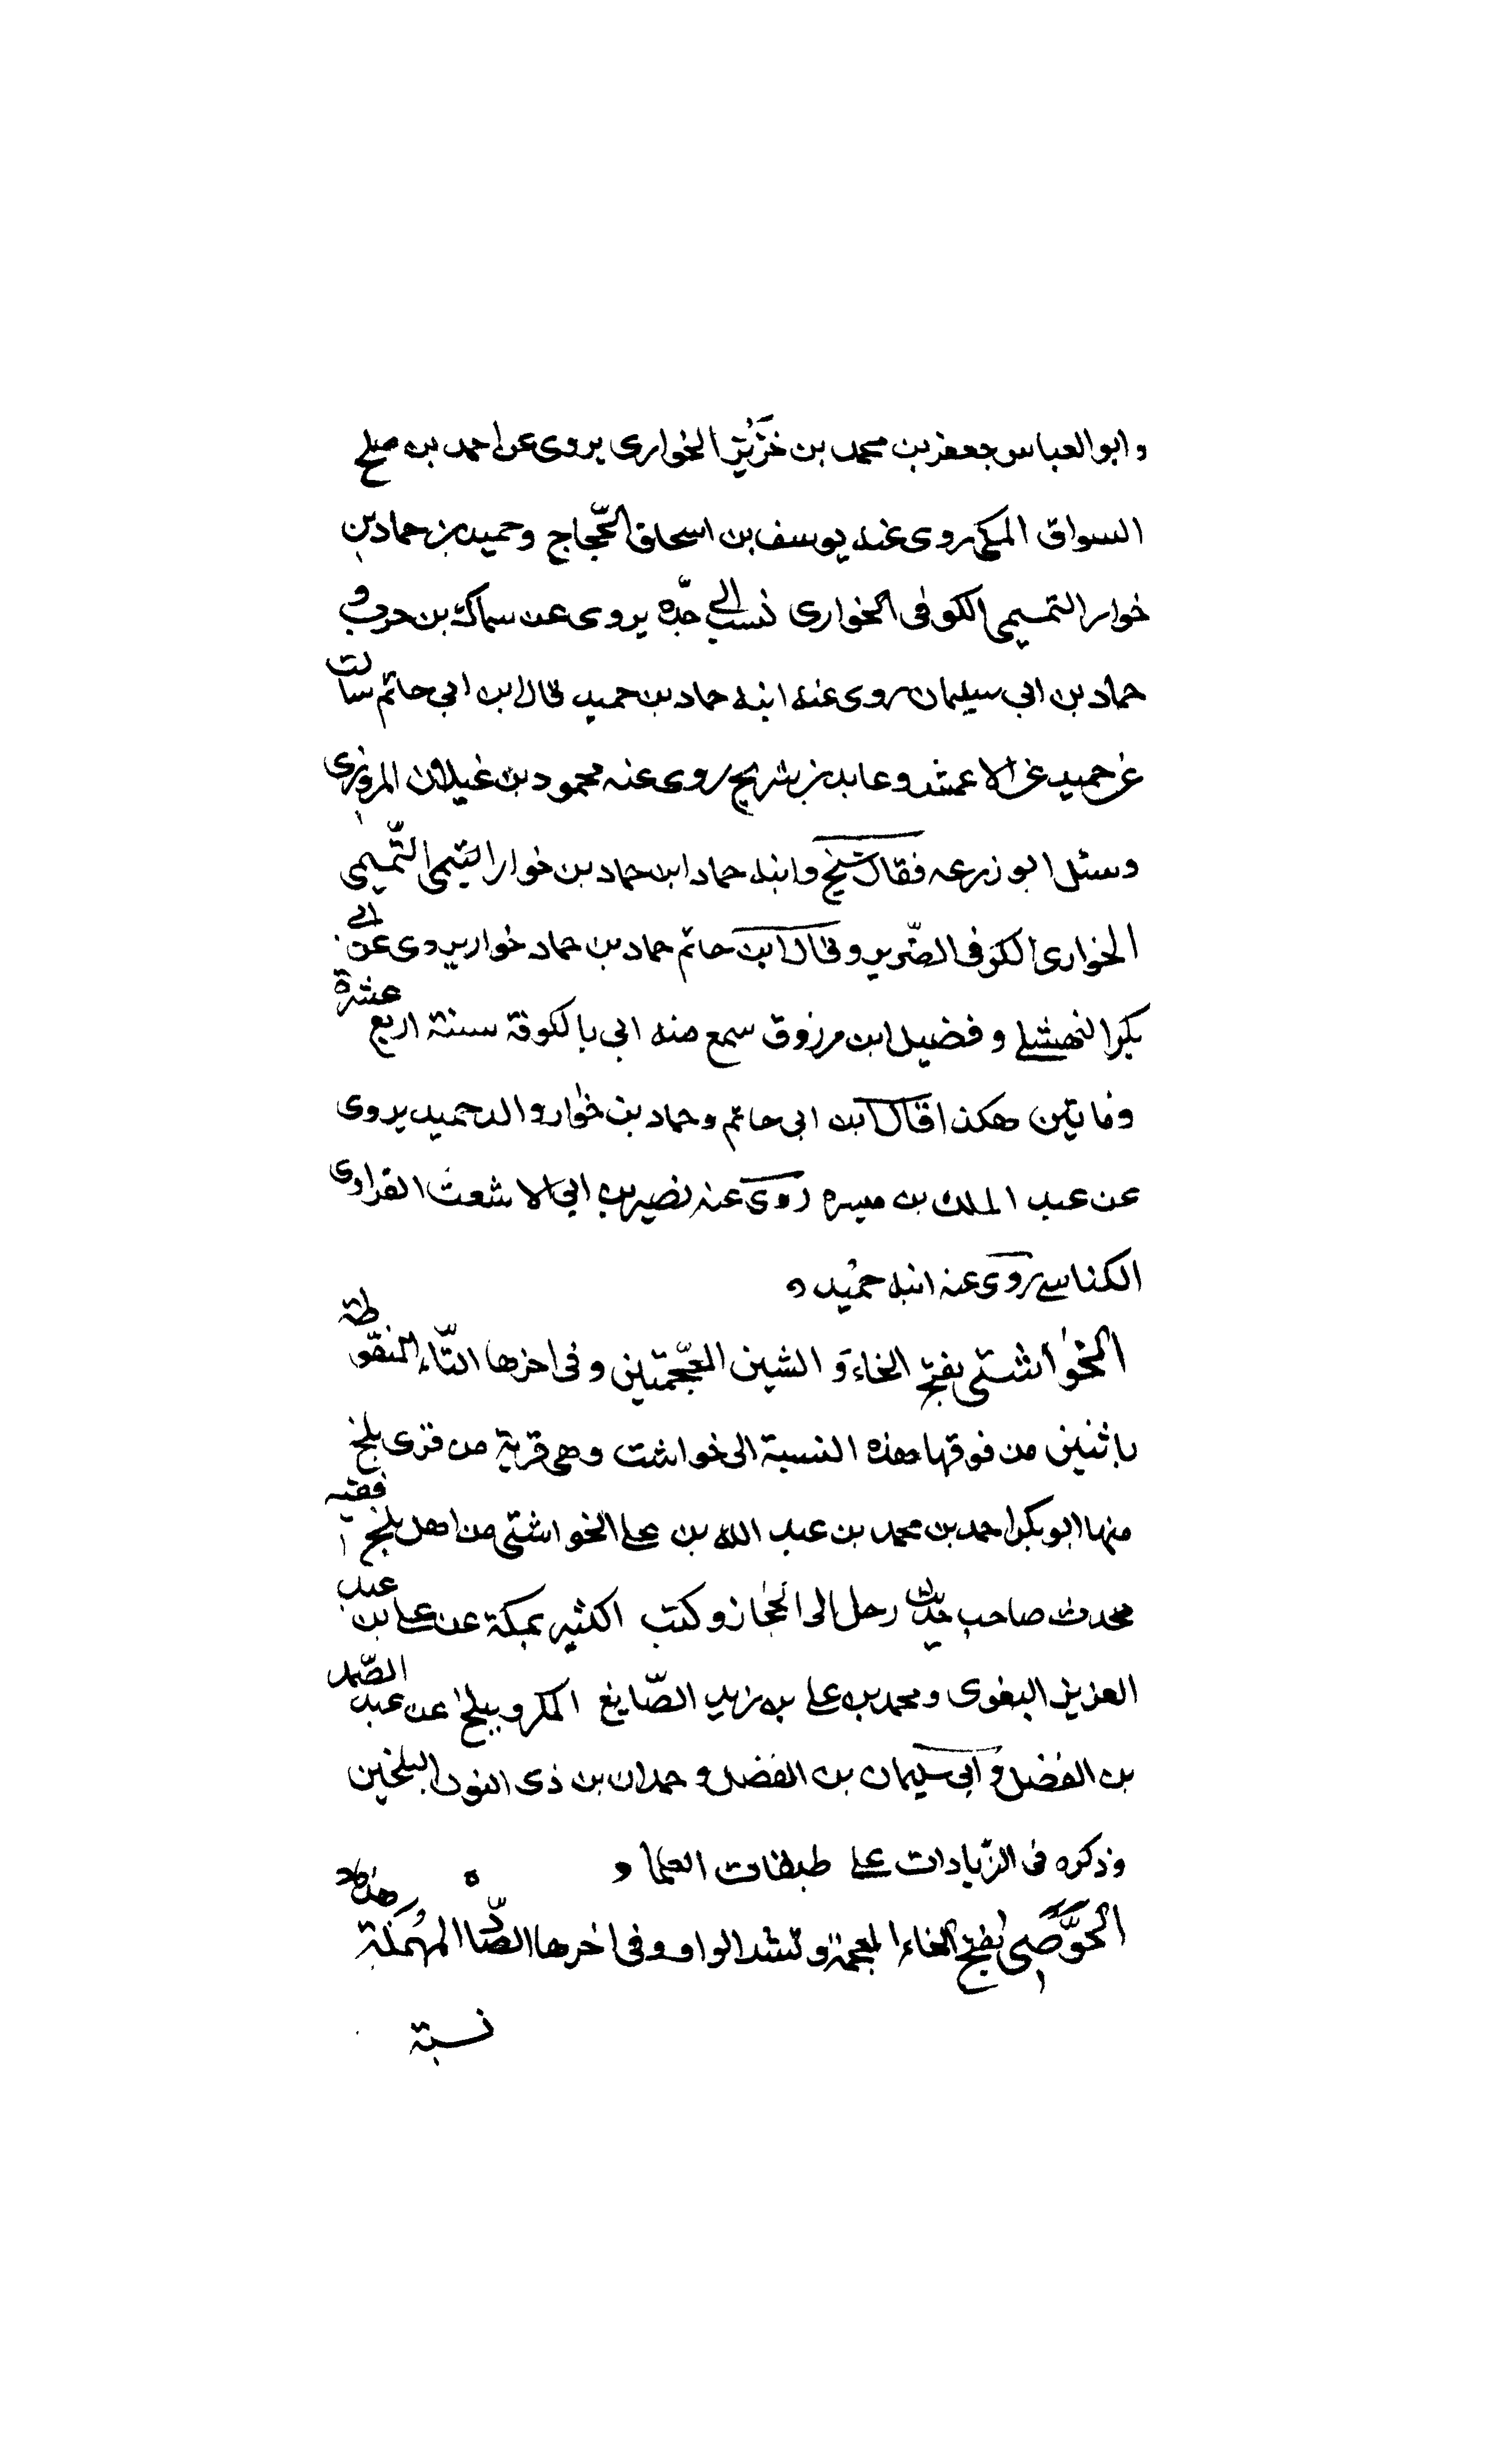 وابو العباس جعفر بن محمد بن خزير الخوارى يروى عن احمد بن صلح
السواق المكى روى عنه يوسف بن اسحاق الحجاج وحميد بن حماد بن
خوار التميمي الكوفى الخوارى نسب الى جدّه يروى عن سماك بن حرب و
حماد بن ابى سليمان روى عنه ابنه حماد بن حميد قال ابن ابي حاتم سالت
عن حميد عن الاعمش وعابد بن شريح روى عنه محمود بن غيلان المروزى
وسئل ابو زرعه فقال شيخ وابنه حماد ابن حماد بن خوار التيمى التّميمى
الخوارى الكوفى الضّرير وقال ابن حاتم حماد بن حماد خوار يروى عن ابى
بكر النهشلى وفضيل ابن مرزوق سمع منه ابى بالكوفة سنة اربع عشرة
وماتين هكذا قال ابن ابى حاتم وحماد بن خوار والد حميد يروى
عن عبد الملك بن ميسره روى عنه نصير بن ابى الاشعث القرادى
الكناسى روى عنه ابنه حميد
الخواشتى بفتح الخاء وَ الشين المعجّمتين وفى اخرها التّاء المنقوطة
باثنين من فوقها هذه النسبة الى خواشت وهى قرية من قرى بلخ
منها ابو بكر احمد بن محمد بن عبد الله بن على الخواشتى من اهل بلخ فقيه
محدث صاحب حديث رحل الى الحجاز وكتب الكثير بمكة عن على بن عبد
العزيز البغوى ومحمد بن على بن زيد الصّايغ المكى وببلخ عن عبد الصّمد
بن الفضل وابى سليمان بن الفضل وحمدان بن ذى النون البلخين
وذكره فى الزّيادات على طبقات العلما
الخوَّصى بفتح الخاء المعجمة وتشد الواو وفى اخرها الصّاد المهملة هذه
نسبة